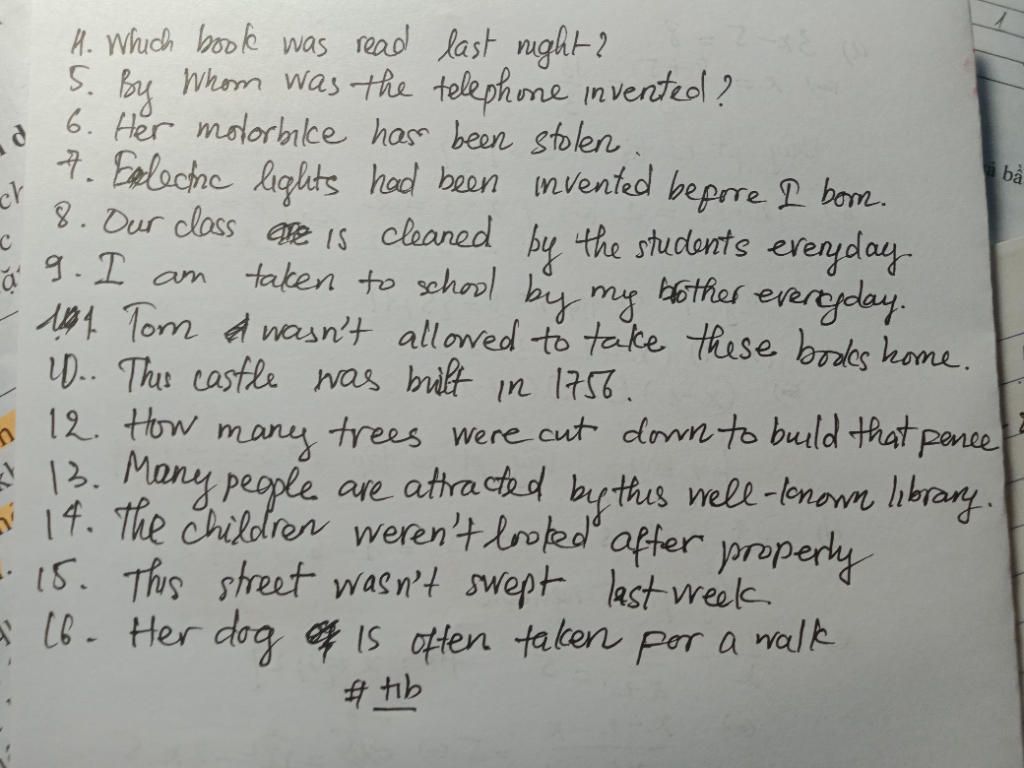 4. Which book was read last night?
5. By Whom was the telephone invented?
6. Her motorbike has been stolen.
7. Eclectric lights had been invented before I born.
8. Our class is cleaned by the students everyday
9. I am taken to school by my brother everyday.
11. Tom wasn't allowed to take these books home.
10.. This castle was built in 1756.
12. How many trees were cut down to build that pence
13. Many people are attracted by this well-known library.
14. The children weren't looked after properly
15. This street wasn't swept last week.
16- Her dog is often taken for a walk
# tib
1
bả